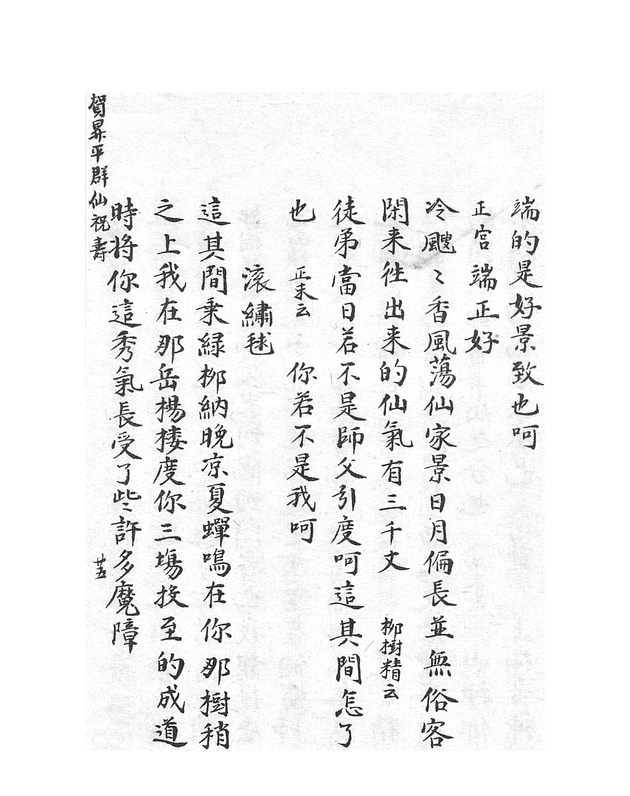 端的是好景致也呵
正宮端正好
冷颼〻香風蕩仙家景日月偏長並無俗客
閑来往出来的仙氣有三千丈　柳樹精云
徒弟當日若不是師父引度呵這其間怎了
也　正末云　你若不是我呵
滚繡毬
這其間乘緑栁納晚凉夏蟬鳴在你那樹稍
之上我在那岳楊楼度你三塲投至的成道
時将你這秀氣長受了些〻許多魔障
賀昇平群仙祝壽
廿五